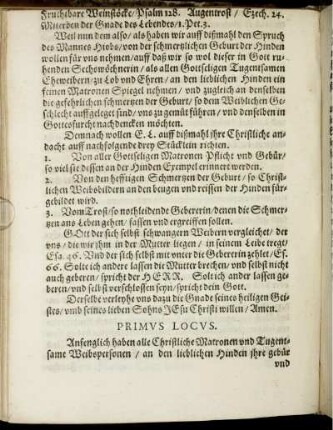 Fruchtbare Weinstöcke/Psalm 128. Augentrost / Ezech. 24.
Miterben der Gnade des Lebendes/1. Pet. 3.
Weil nun dem also/ als haben wir auff dißmahl den Spruch
des Mannes Hiobs/ von der schmertzlichen Geburt der Hinden
wollen für uns nehmen/auff daß wir so wol dieser in Gott ru-
henden Sechswöchnerin / als allen Gottseligen Tugentsamen
Eheweibern/ zu Lob vnd Ehren / an den lieblichen Hinden ein
feinen Matronen Spiegel nehmen / vnd zugleich an denselben
die gefehrlichen schmertzen der Geburt/ so dem Weiblichen Ge-
schlecht aufferleget sind/ vns zu gemüt führen / vnd denselben in
Gottesfurcht nachdencken möchten.
Demnach wollen E. L. auff dißmahl ihre Christliche an-
docht auff nachfolgende drey Stücklein richten.
1. Von aller Gottseligen Matronen Pflicht vnd Gebür/
so viel sie dessen an der Hinden Exempel erinnert werden.
2. Von den hefftigen Schmertzen der Geburt / so Christli-
chen Weibsbildern an den beugen vnd reissen der Hinden für-
gebildet wird.
3. Vom Trost/ so nothleidende Gebererin/ denen die Schmer-
tzen ans Leben gehen/ fassen vnd ergreiffen sollen.
GOtt der sich selbst schwangern Weibern vergleichet/ der
vns / die wir ihm in der Mutter liegen / in seinem Leibe tregt/
Esa. 46. Vnd der sich selbst mit vnter die Geberterin zehlet/Es.
66. Solt ich andere lassen die Mutter brechen/ vnd selbst nicht
auch geberen / spricht der HERR. Solt ich ander lassen ge-
beren/vnd selbst verschlossen seyn/spricht dein Gott.
Derselbe verleyhe vns dazu die Gnade seines heiligen Gei-
stes/ vmb seines lieben Sohns JEsu Christi willen / Amen.
PRIMVS LOCVS.
Anfenglich haben alle Christliche Matronen vnd Tugent-
same Weibspersonen / an den lieblichen Hinden ihre gebür
vnd